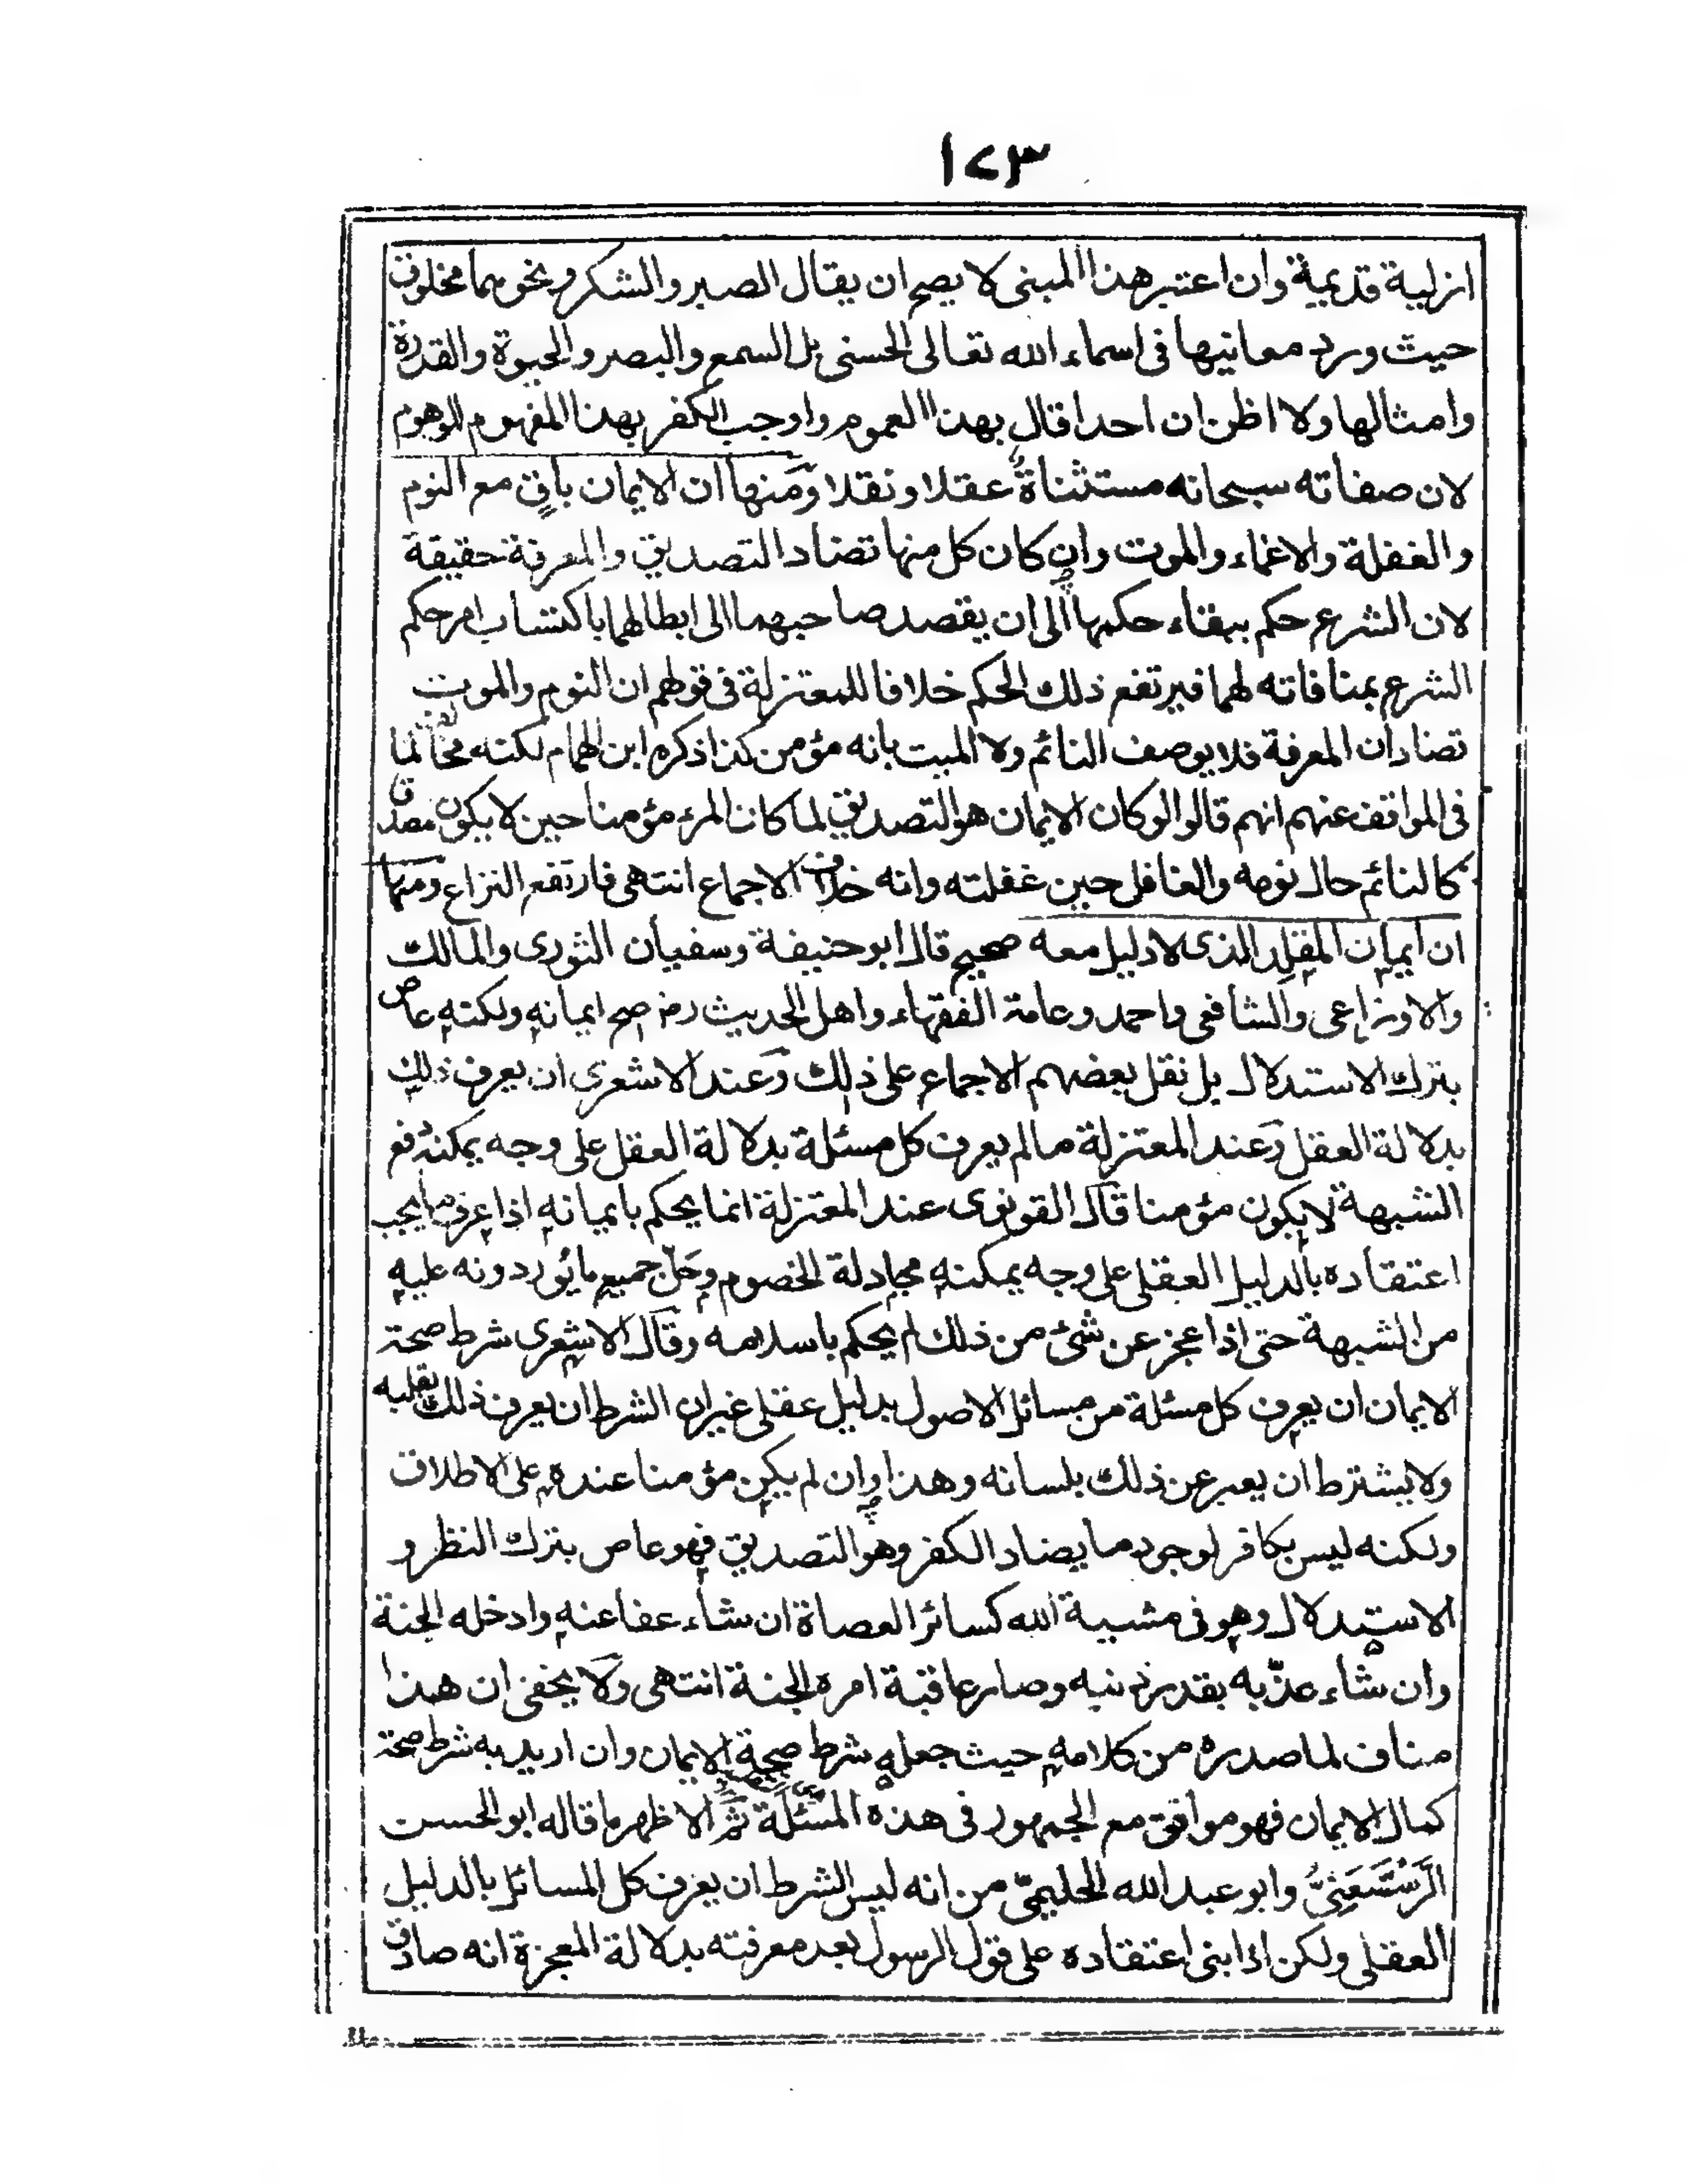 ١٧٣
ازلية قديمية وان اعتبر هذا المبنى لا يصح ان يقال الصبر والشكر ونحوهما مخلوق
حيث ورد معانيها فى اسماء الله تعالى الحسنى بل السمع والبصر والحيوة والقدرة
وامثالها ولا اظن ان احدا قال بهذا العموم واوجب الكفر بهذا المفهوم الموهوم
لان صفاته سبحانه مستثناة عقلا ونقلا ومنها ان الايمان باق مع النوم
والغفلة والاغماء والموت وان كان كل منها تضاد التصديق والمعرفة حقيقة
لان الشرع حكم ببقاء حكمهما الى ان يقصد صاحبهما الى ابطالهما باكتساب امر حكم
الشرع بمنافاته لهما فيرتفع ذلك الحكم خلافا للمعتزلة فى قولهم ان النوم والموت
تضادان المعرفة فلا يوصف النائم ولا الميت بانه مؤمن كذا ذكره ابن الهمام لكنه مخالف لما
فى المواقف عنهم انهم قالوا لو كان الايمان هو التصديق لما كان المرء مؤمنا حين لا يكون مصدق
كالنائم حال نومه والغافل حين غفلته وانه خلاف الاجماع انتهى فارتفع النزاع ومنها
ان ايمان المقلد الذى لا دليل معه صحيح قال ابو حنيفة وسفيان الثورى والمالك
والاوزاعى والشافعى واحمد وعامة الفقهاء واهل الحديث رض صح ايمانه ولكنه عاص
بترك الاستدلال بل نقل بعضهم الاجماع على ذلك وعند الاشعرى ان يعرف ذلك
بدلالة العقل وعند المعتزلة ما لم يعرف كل مسئلة بدلالة العقل على وجه يمكنه دفع
الشبهة لا يكون مؤمنا قال القونوى عند المعتزلة انما يحكم بايمانه اذا عرف ما يجب
اعتقاده بالدليل العقلى على وجه يمكنه مجادلة الخصوم وحل جميع ما يوردونه عليه
من الشبهة حتى اذا عجز عن شئ من ذلك لم يحكم باسلامه وقال الاشعرى شرط صحة
الايمان ان يعرف كل مسئلة من مسائل الاصول بدليل عقلى غير ان الشرط ان يعرف ذلك بقلبه
ولا يشترط ان يعبر عن ذلك بلسانه وهذا وان لم يكن مؤمنا عنده على الاطلاق
ولكنه ليس بكافر لوجود ما يضاد الكفر وهو التصديق فهو عاص بترك النظر و
الاستدلال وهو فى مشيية الله كسائر العصاة ان شاء عفا عنه وادخله الجنة
وان شاء عذّبه بقدر ذنبه وصار عاقبة امره الجنة انتهى ولا يخفى ان هذا
مناف لما صدره من كلامه حيث جعله شرط صحة الايمان وان اريد به شرط صحة
كمال الايمان فهو موافق مع الجمهور فى هذه المسئلة ثم الاظهر ما قاله ابو الحسن
الرَّسْتَسْغَنِىُّ وابو عبد الله الحليمىّ من انه ليس الشرط ان يعرف كل المسائل بالدليل
العقلى ولكن اذا بنى اعتقاده على قول الرسول بعد معرفته بدلالة المعجزة انه صادق